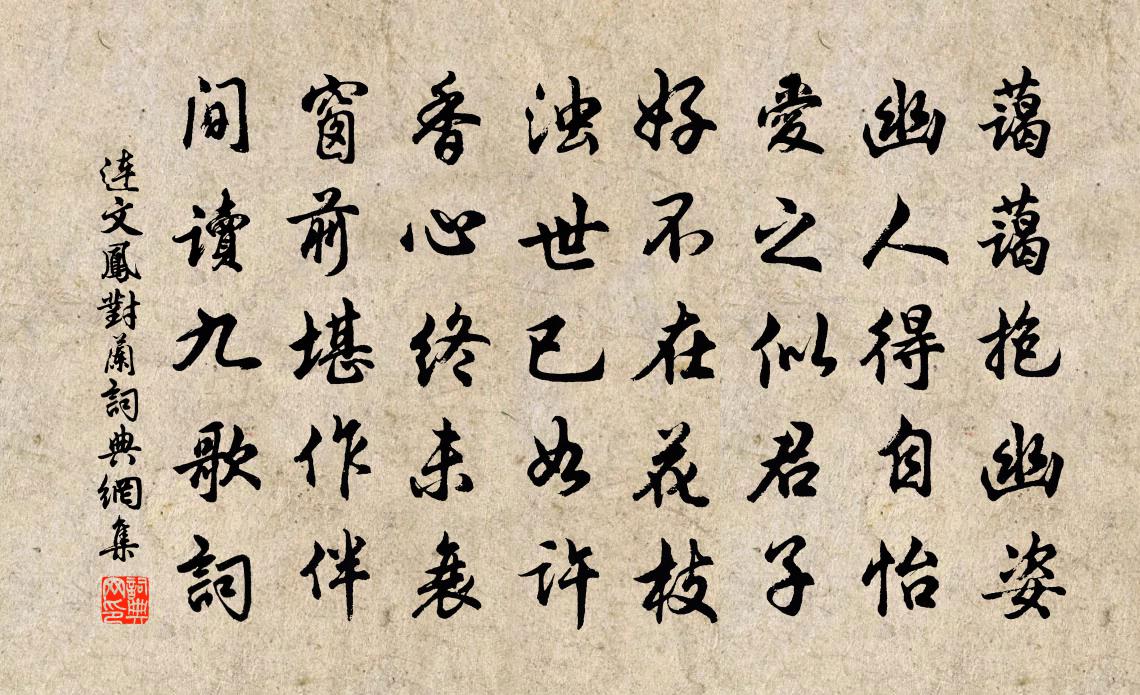 藹藹抱幽姿
幽人得自怡
愛之似君子
好不在花枝
浊世已如許
香心终未衰
窗前堪作伴
間讀九歌詞
连文鳳對蘭詞典網集
詞典网印